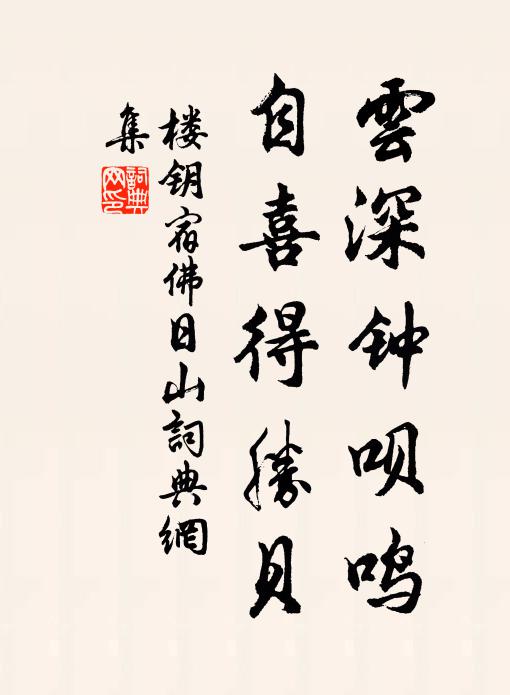 雲深钟呗鸣
自喜得勝具
楼钥宿佛日山詞典網
集
詞典
网印